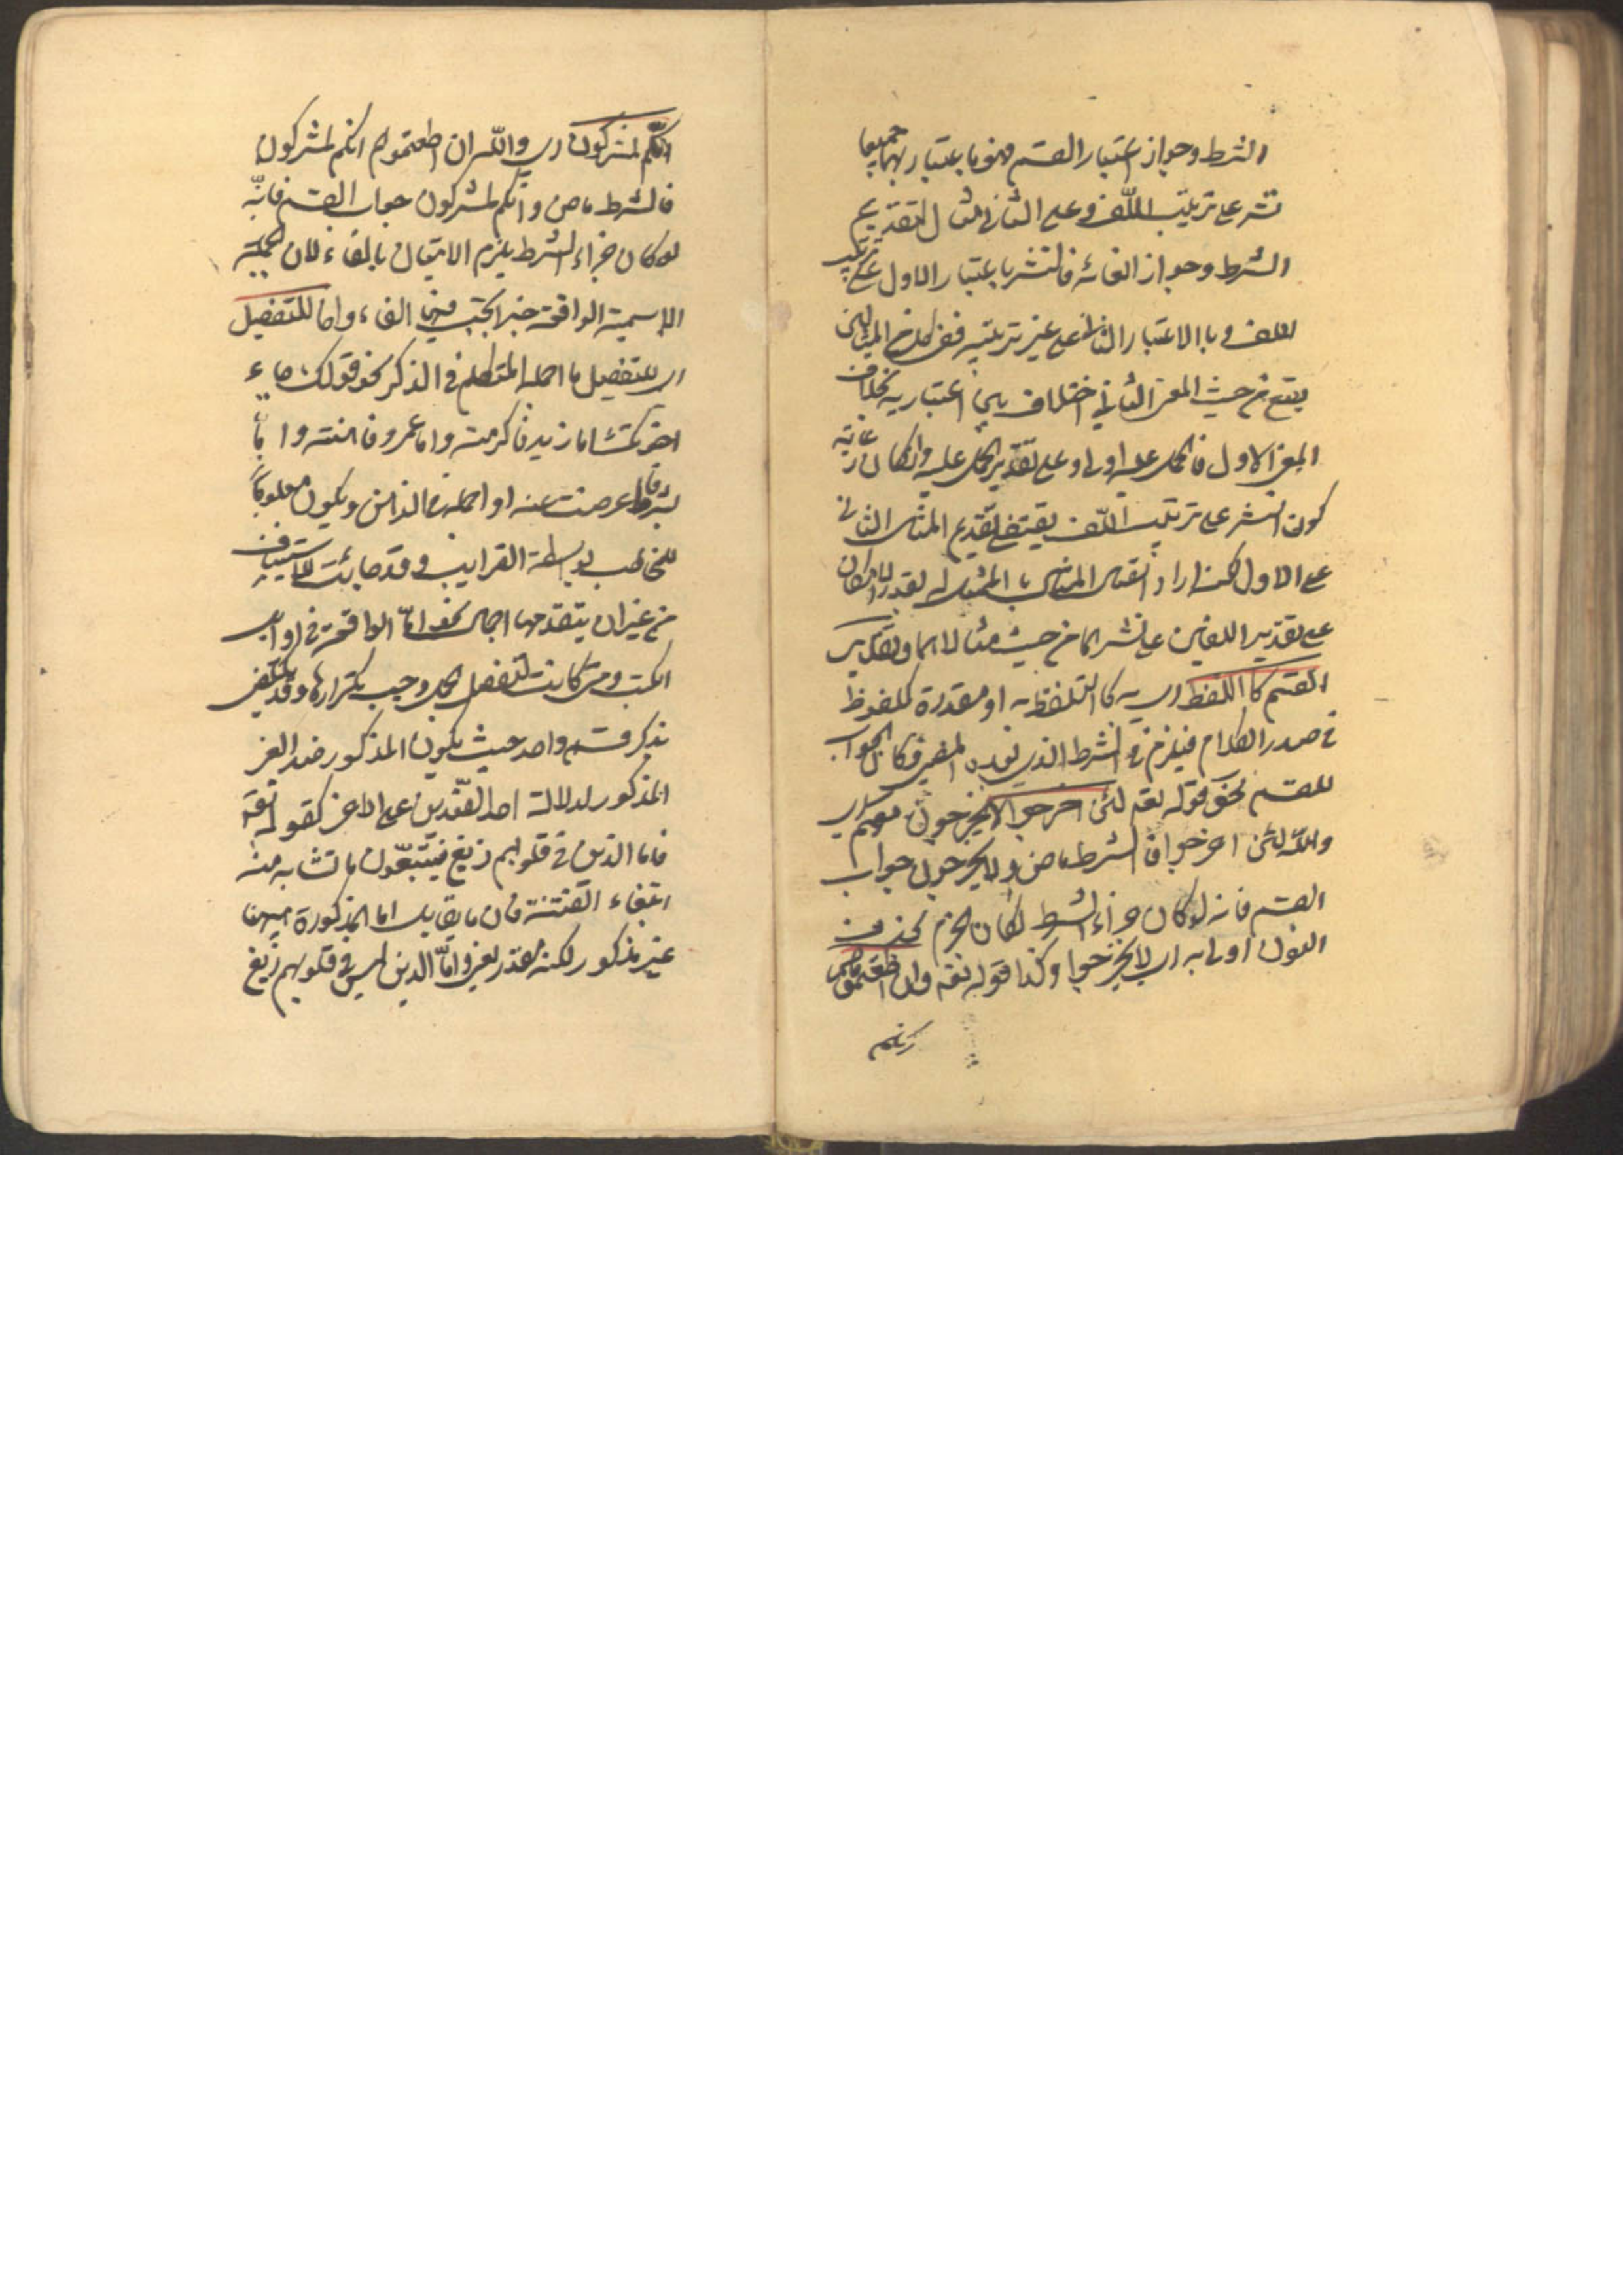 الشرط وجواز اعتبار القسم فهو باعتبار بهما جميعا
نشر على ترتيب اللّف وعلى الثاني مثال لتقديم
الشرط وجواز الغائه فالنشر باعتبار الاول على ترتيب
اللف وبالاعتبار الثاني على غير ترتيبه ففي كلام المثالين
يقع من حيث المعنى الثاني اختلاف بين اعتباريه بخلاف
المعنى الاول فالحمل عليه اولى وعلى تقدير الحمل عليه وان كان رعاية
كون النشر على ترتيب اللّف يقتضي تقديم المثال الثاني
على الاول لكنه اراد اتصال المثال بالممثل له بقدر الامكان
على تقدير اللفين على نشرهما من حيث مثالاهما وتقدير
القسم كاللفظ اى به كالتلفظ به او مقدرة كملفوظ
في صدر الكلام فيلزم في الشرط الذي بعده المضي فكان الجواب
للقسم نحو قوله تعه لئن اخرجوا لا يخرجون معهم اى
والله لئن اخرجوا فالشرط ماض ولا يخرجون جواب
القسم فانه لو كان جزاء الشرط لكان الجزم بحذف
النون اولى به اى لا يخرجوا وكذا قوله تعه وان اطعتموهم
انكم
انّكم لمشركون اى والله ان اطعتموهم انكم لمشركون
فالشرط ماض وانكم لمشركون جواب القسم فانّه
لو كان جزاء الشرط يلزم الاتيان بالفاء لان الجملة
الاسمية الواقعة جزاء يجب فيها الفاء واما للتفصيل
اى لتفصيل ما اجمله المتكلم في الذكر نحو قولك جاء
اخوتك اما زيد فاكرمته واما عمرو فاهنته واما
بشر فاعرضت عنه او اجمله في الذهن ويكون معلوما
للمخاطب بواسطة القراين وقد جائت للاستيناف
من غير ان يتقدمها اجمال نحو امّا الواقعة في اوايل
الكتب ومتى كانت لتفصيل المجمل وجب تكرارها وقد يكتفى
بذكر قسم واحد حيث يكون المذكور ضد الغير
المذكور لدلالة احد الضدين على الاخر كقوله تعه
فاما الذين في قلوبهم زيغ فيتّبعون ما تشابه منه
ابتغاء الفتنة فان ما يقابل اما المذكورة ههنا
غير مذكور لكنه مقدر يعنى وامّا الذين ليس في قلوبهم زيغ